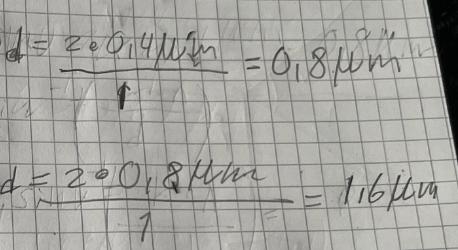 d = 2•0,4μm / 1 = 0,8μm
d = 2•0,8μm / 1 = 1,6μm